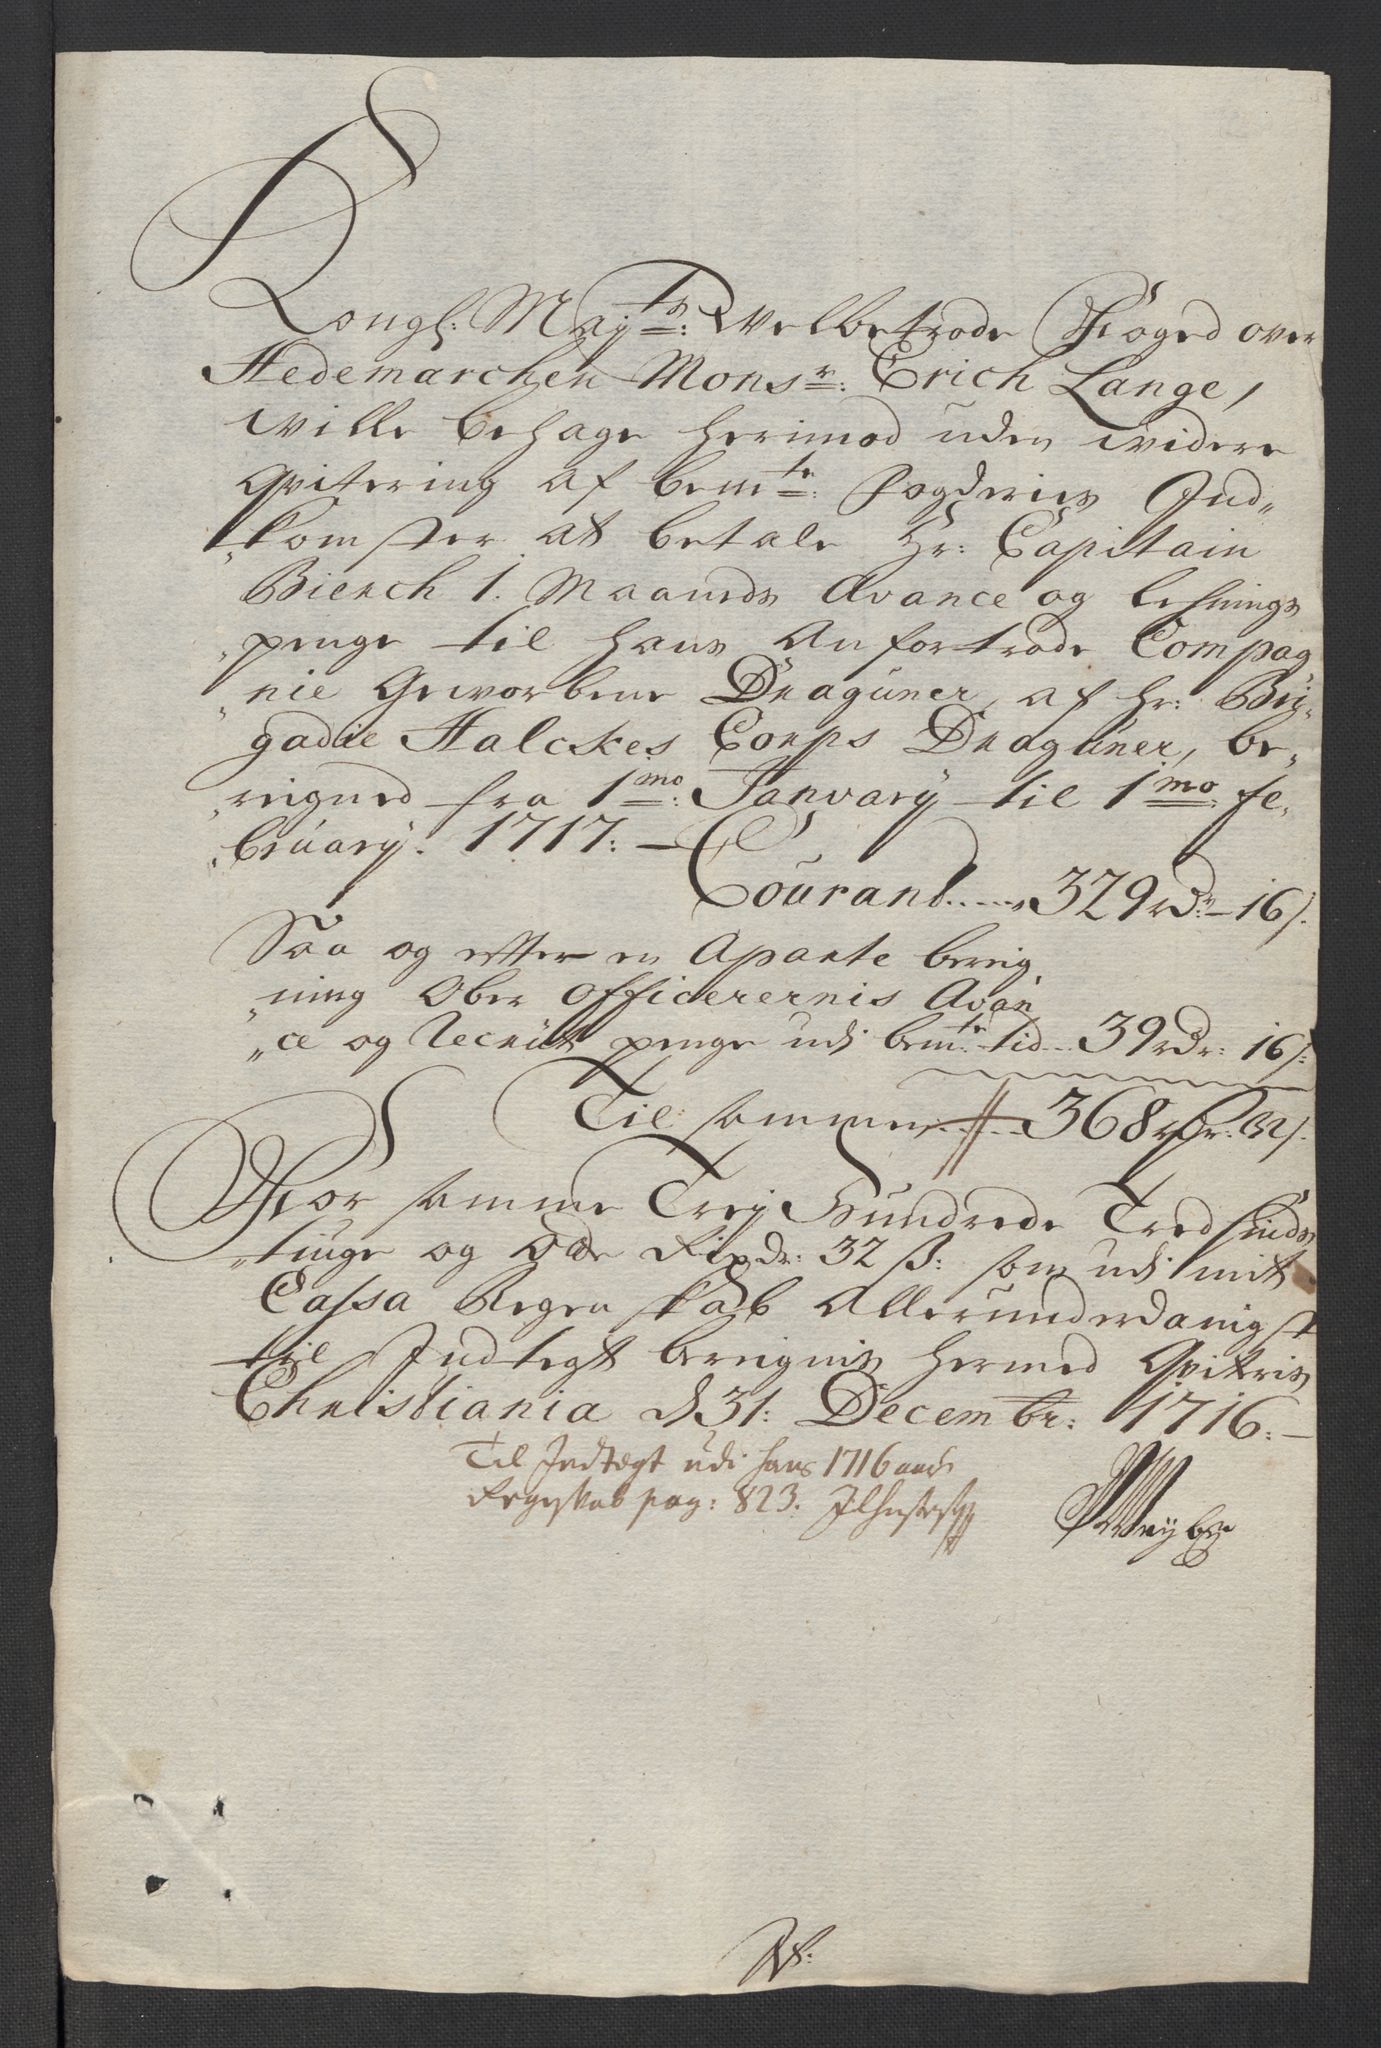 Kongl: Maÿts: Velbetrode Foged over
Hedemarchen Monsr: Erich Lange,
ville behage herimod uden videre
Qvitering af bemte: Fogderies Ind„
„komster at betale Hr: Capitain
Bierch 1. Maaneds Avance og Lehnings
„penge til hans Anfortrode Compag
„nie Gevorbene Draguner, af Hr: Bri„
gadie Halckes Corps Draguner, be„
„reigned fra 1mo: Janvarÿ til 1mo: fe„
„bruarÿ. 1717: —
Courant..... 329 rdr – 16 s.
Saa og efter en Aparte bereig„
„ning Ober Officerernis Avan
„ce og Recrüt penge udi bemte tid... 39 rdr: 16 s:
Til sammen..... 368 rdr: 32 s.
For samme Treÿ Hundrede Tredsinds
„tiuge og Otte Rixdr: 32 s: som udi mit
Cassa Regenskab Allerunderdanigst
til Indtegt bereignis hermed Qviteris
Christiania d 31: Decembr: 1716: —
Til Indtegt udi hans 1716 aars
Regnskab pag: 823.